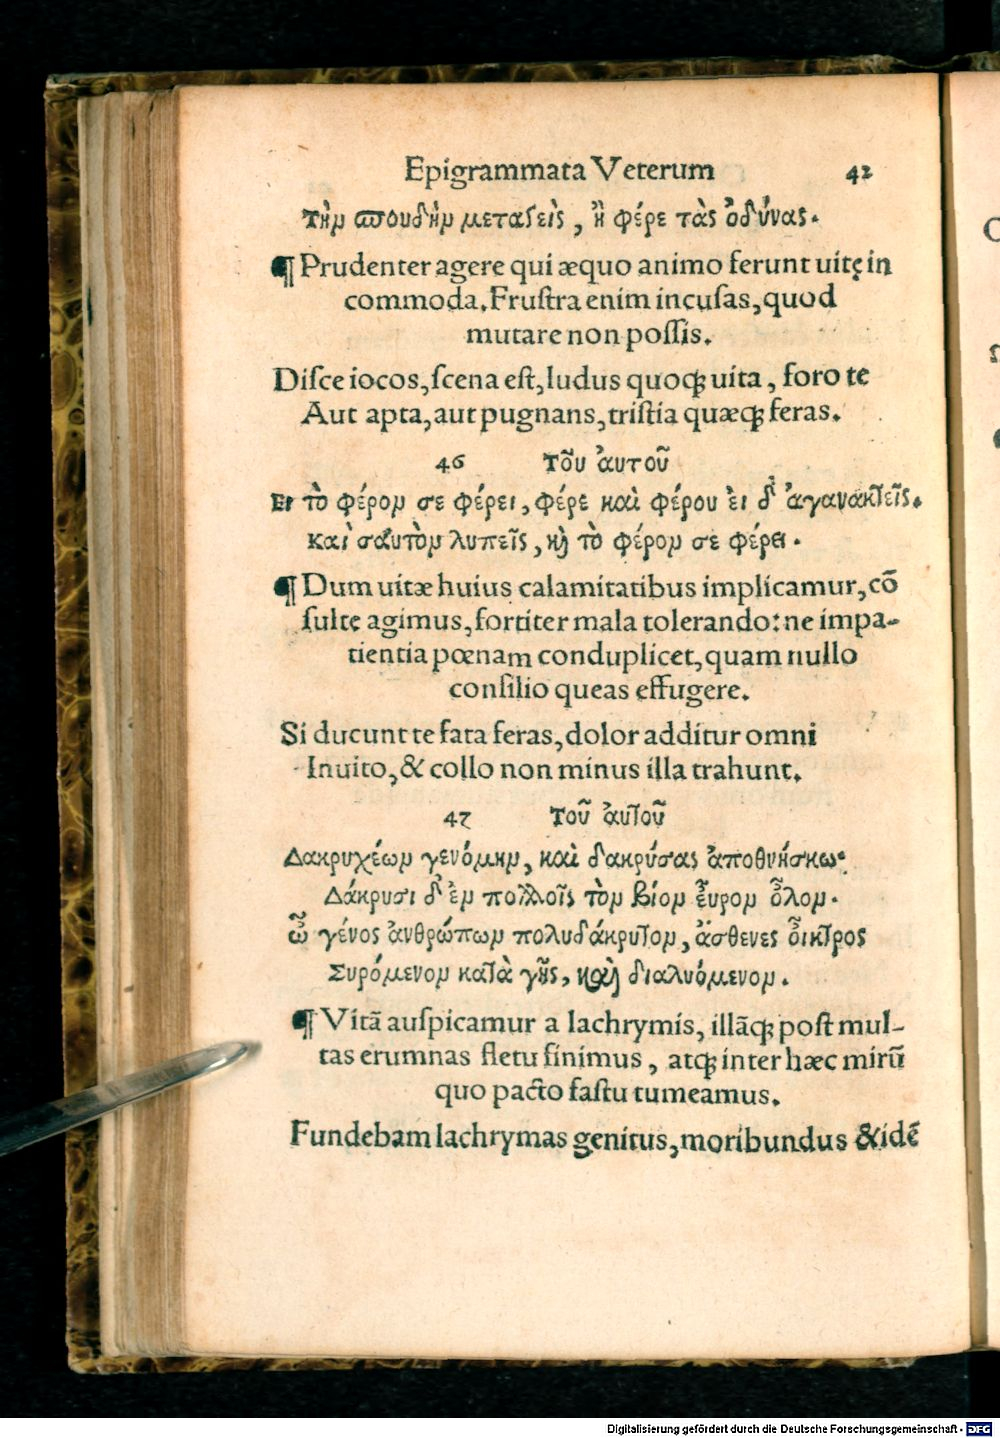 Epigrammata Veterum 42
Τὴν σπουδὴν μεταθεὶς, ἢ φέρε τὰς ὀδύνας.
¶ Prudenter agere qui æquo animo ferunt uitę in
commoda. Frustra enim incusas, quod
mutare non possis.
Disce iocos, scena est, ludus quoqꝫ uita, foro te
Aut apta, aut pugnans, tristia quæqꝫ feras.
46 Τοῦ ἀυτοῦ
Ει τὸ φέρον σε φέρει, φέρε καὶ φέρου ἐι δ' ἀγανακτεῖς.
Καὶ σαυτὸν λυπεῖς, κὴ τὸ φέρον σε φέρει.
¶ Dum uitæ huius calamitatibus implicamur, cō
sulte agimus, fortiter mala tolerando: ne impa-
tientia pœnam conduplicet, quam nullo
consilio queas effugere.
Si ducunt te fata feras, dolor additur omni
Inuito, & collo non minus illa trahunt.
47 Τοῦ ἀυτοῦ
Δακρυχέων γενόμην, καὶ δακρύσας ἀποθνήσκω.
Δάκρυσι δ' ἐν πολλοῖς τὸν βίον εὗρον ὅλον.
ὦ γένος ἀνθρώπων πολυδάκρυτον, ἄσθενες οἶκτρος
Συρόμενον κατὰ γῆς, καὶ διαλυόμενον.
¶ Vitā auspicamur a lachrymis, illāqꝫ post mul-
tas erumnas fletu finimus, atqꝫ inter hæc mirū
quo pacto fastu tumeamus.
Fundebam lachrymas genitus, moribundus & idē
Digitalisierung gefördert durch die Deutsche Forschungsgemeinschaft - DFG